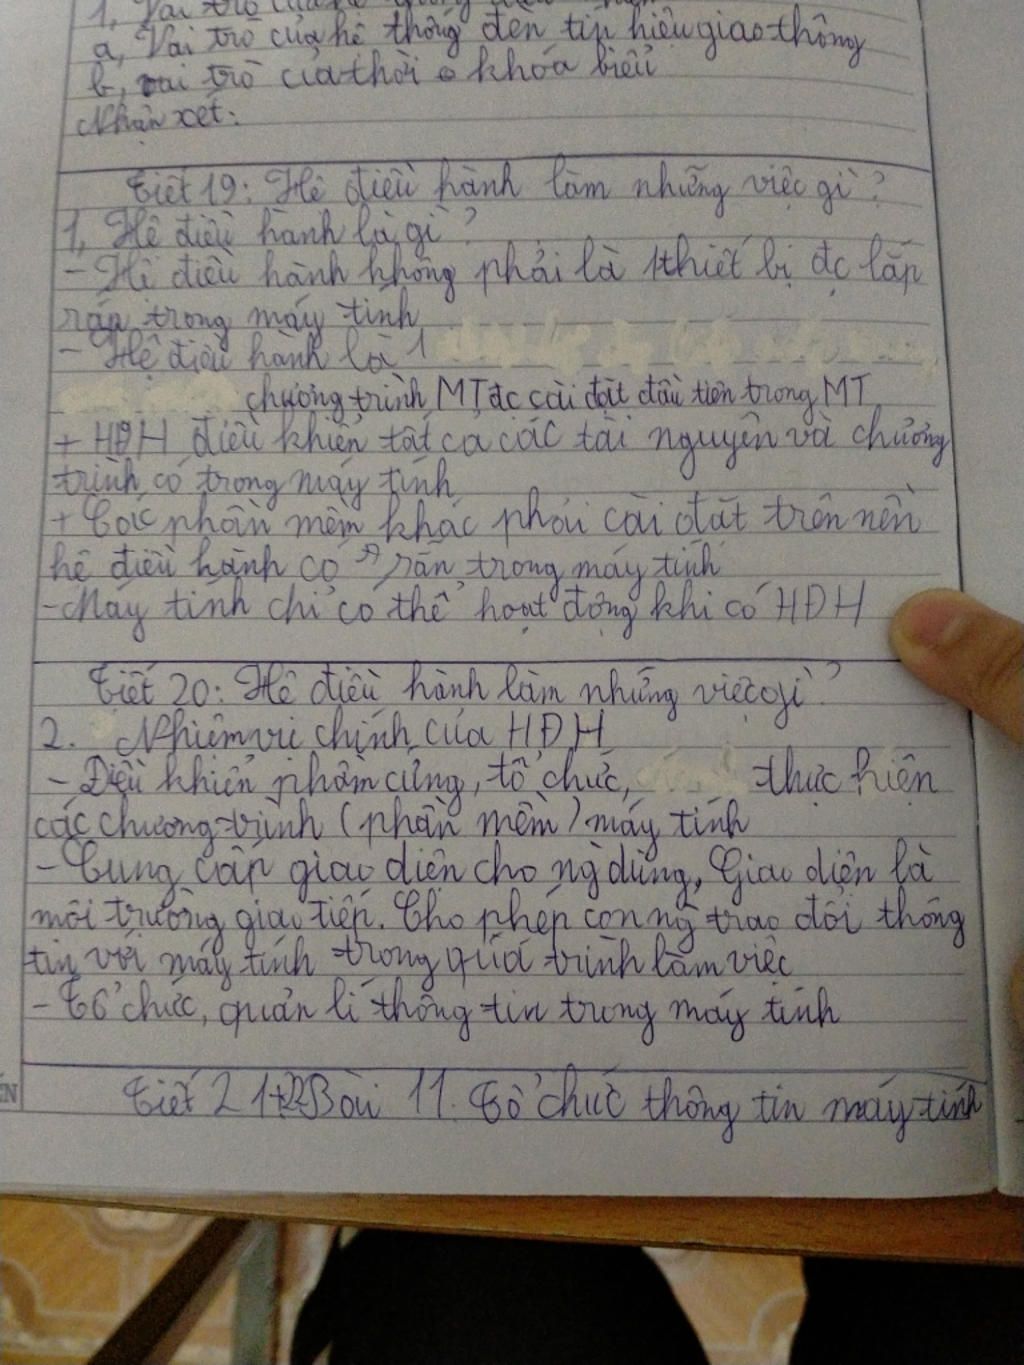 1, Vai trò của
a, Vai trò của hệ thống đèn tín hiệu giao thông
b, vai trò của thời khóa biểu
Nhận xét:
Tiết 19: Hệ điều hành làm những việc gì?
1, Hệ điều hành là gì?
- Hệ điều hành không phải là 1 thiết bị đc lắp
ráp trong máy tính
- Hệ điều hành là 1
chương trình MT đc cài đặt đầu tiên trong MT
+ HĐH điều khiển tất cả các tài nguyên và chương
trình có trong máy tính
+ Các phần mềm khác phải cài đặt trên nền
hệ điều hành có sẵn trong máy tính
- Máy tính chỉ có thể hoạt động khi có HĐH
Tiết 20: Hệ điều hành làm những việc gì?
2. Nhiệm vụ chính của HĐH
- Điều khiển phần cứng, tổ chức, thực hiện
các chương trình (phần mềm) máy tính
- Cung cấp giao diện cho ng dùng, Giao diện là
môi trường giao tiếp. Cho phép con ng trao đổi thông
tin với máy tính trong quá trình làm việc
- Tổ chức, quản lí thông tin trong máy tính
Tiết 21+22 Bài 11. Tổ chức thông tin máy tính